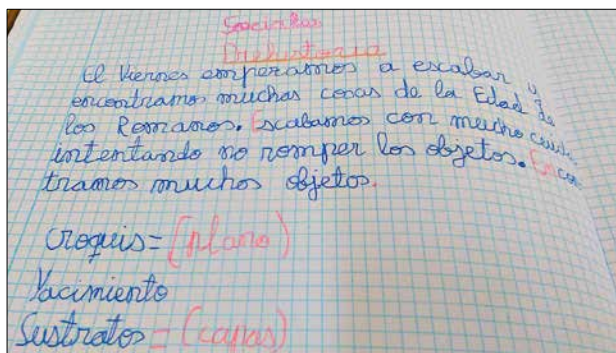 Sociales
Prehistoria
El Viernes emperamos a escabar y
encontramos muchas cosas de la Edad de
los Romanos. Escabamos con mucho
intentando no romper los objetos.
tramos muchos objetos.
croquis = (plano)
Yacimiento
Sustratos = (capas)